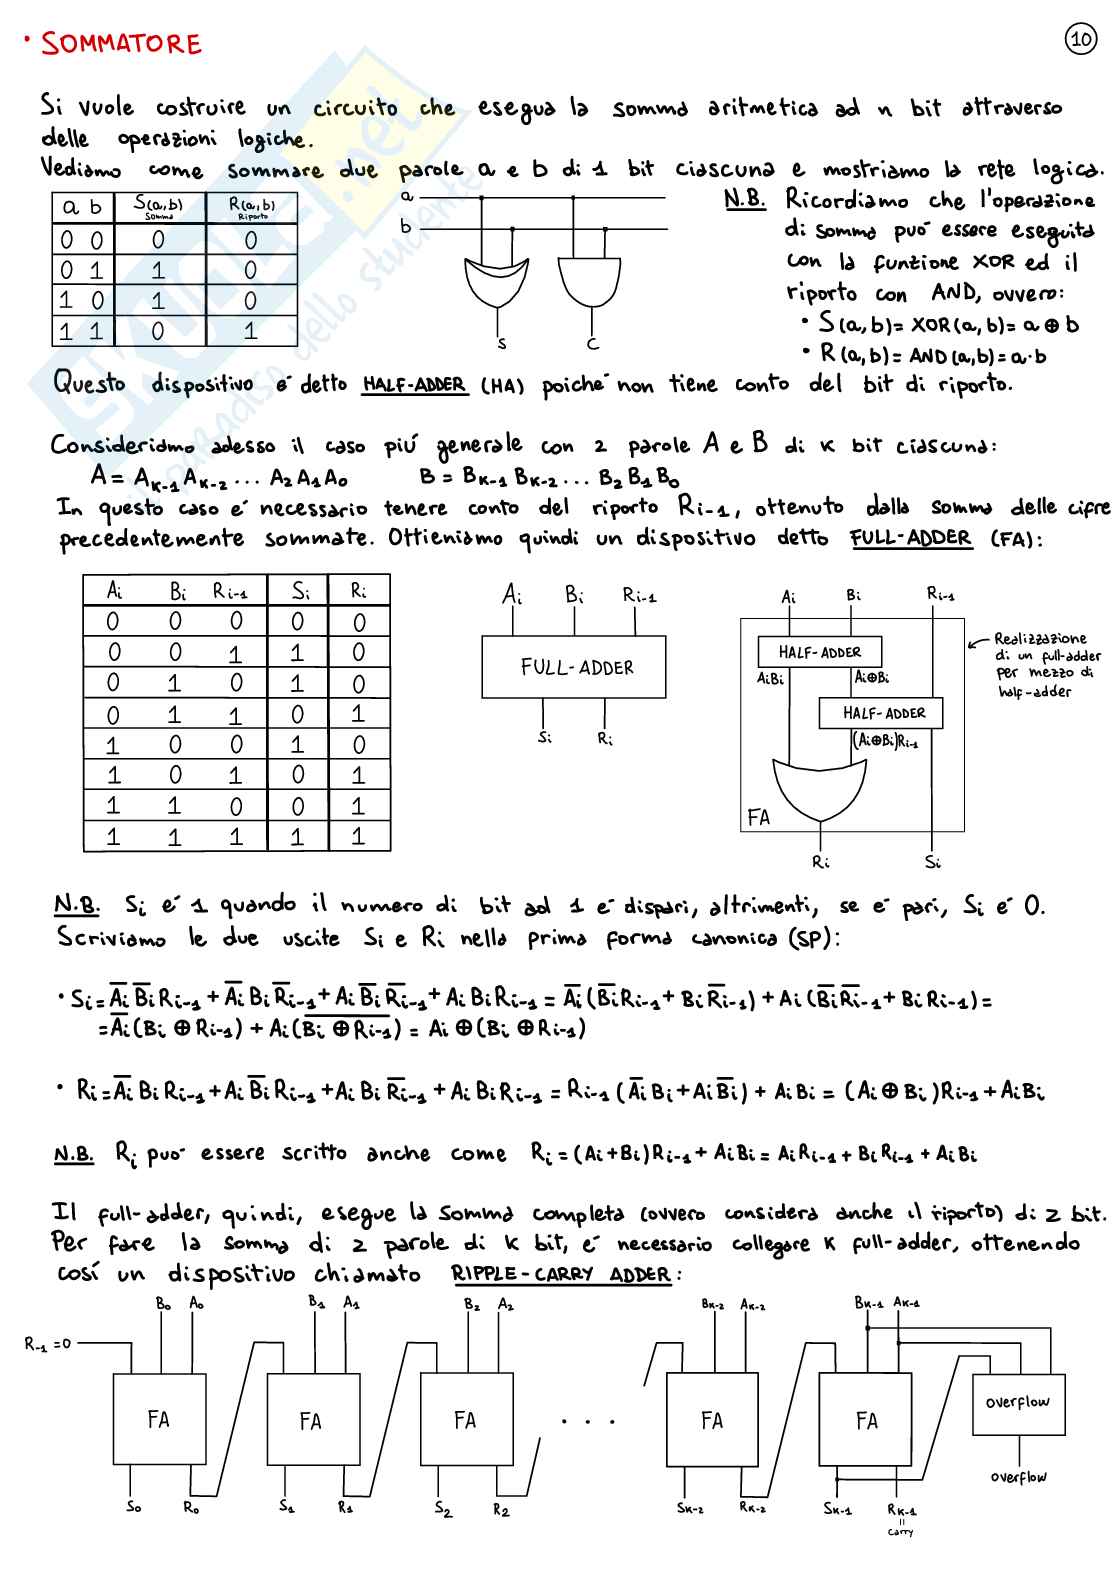 • SOMMATORE
10
Si vuole costruire un circuito che esegua la somma aritmetica ad n bit attraverso
delle operazioni logiche.
Vediamo come sommare due parole a e b di 1 bit ciascuna e mostriamo la rete logica.
a b S(a,b) Somma R(a,b) Riporto
0 0 0 0
0 1 1 0
1 0 1 0
1 1 0 1
a
b
S C
N.B. Ricordiamo che l'operazione
di somma puó essere eseguita
con la funzione XOR ed il
riporto con AND, ovvero:
• S(a,b)= XOR(a,b)= a ⊕ b
• R(a,b)= AND(a,b)= a·b
Questo dispositivo é detto HALF-ADDER (HA) poiché non tiene conto del bit di riporto.
Consideriamo adesso il caso piú generale con 2 parole A e B di K bit ciascuna:
A = AK-1 AK-2 ... A2 A1 A0 B = BK-1 BK-2 ... B2 B1 B0
In questo caso é necessario tenere conto del riporto Ri-1, ottenuto dalla somma delle cifre
precedentemente sommate. Otteniamo quindi un dispositivo detto FULL-ADDER (FA):
Ai Bi Ri-1 Si Ri
0 0 0 0 0
0 0 1 1 0
0 1 0 1 0
0 1 1 0 1
1 0 0 1 0
1 0 1 0 1
1 1 0 0 1
1 1 1 1 1
Ai Bi Ri-1
FULL-ADDER
Si Ri
Ai Bi Ri-1
HALF-ADDER
AiBi Ai⊕Bi
HALF-ADDER
(Ai⊕Bi)Ri-1
FA
Ri Si
Realizzazione
di un full-adder
per mezzo di
half-adder
N.B. Si é 1 quando il numero di bit ad 1 é dispari, altrimenti, se é pari, Si é 0.
Scriviamo le due uscite Si e Ri nella prima forma canonica (SP):
• Si = A̅i B̅i Ri-1 + A̅i Bi R̅i-1 + Ai B̅i R̅i-1 + Ai Bi Ri-1 = A̅i (B̅i Ri-1 + Bi R̅i-1) + Ai (B̅i R̅i-1 + Bi Ri-1) =
= A̅i (Bi ⊕ Ri-1) + Ai (B̅i̅ ̅⊕̅ ̅R̅i̅-̅1̅) = Ai ⊕ (Bi ⊕ Ri-1)
• Ri = A̅i Bi Ri-1 + Ai B̅i Ri-1 + Ai Bi R̅i-1 + Ai Bi Ri-1 = Ri-1 (A̅i Bi + Ai B̅i) + Ai Bi = (Ai ⊕ Bi )Ri-1 + Ai Bi
N.B. Ri puó essere scritto anche come Ri = (Ai+Bi)Ri-1 + AiBi = AiRi-1 + BiRi-1 + AiBi
Il full-adder, quindi, esegue la somma completa (ovvero considera anche il riporto) di 2 bit.
Per fare la somma di 2 parole di K bit, é necessario collegare K full-adder, ottenendo
cosí un dispositivo chiamato RIPPLE-CARRY ADDER:
B0 A0 B1 A1 B2 A2 BK-2 AK-2 BK-1 AK-1
R-1 = 0
FA FA FA . . . FA FA overflow
S0 R0 S1 R1 S2 R2 SK-2 RK-2 SK-1 RK-1 overflow
=
carry
SKUOLA.net
il paradiso dello studente